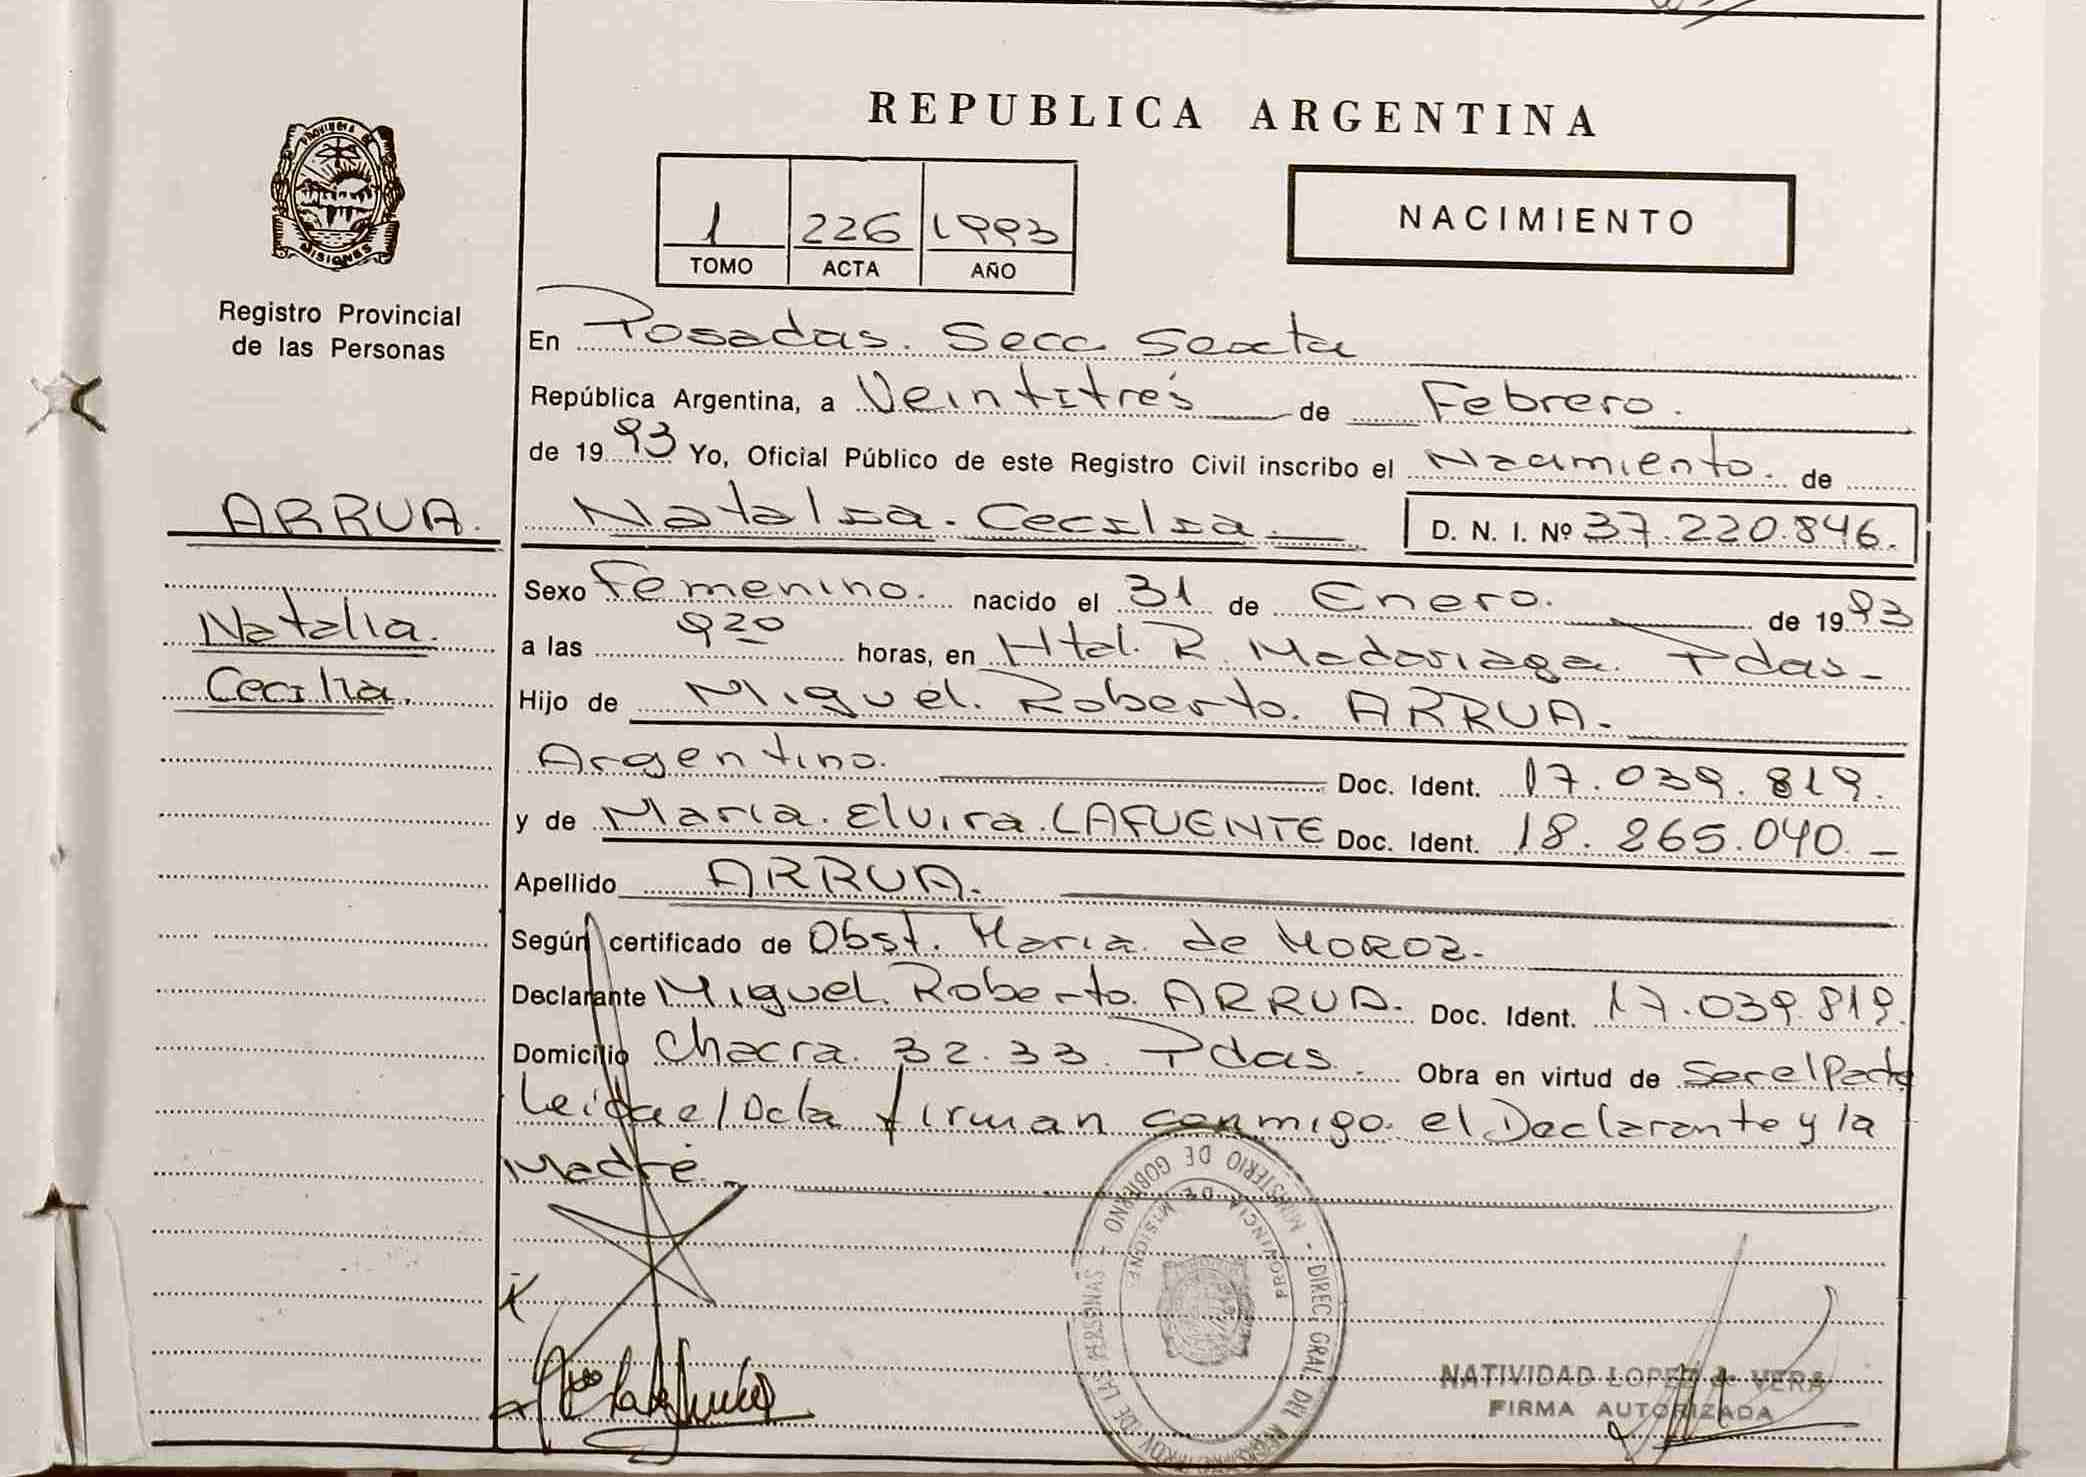 REPUBLICA ARGENTINA
PROVINCIA DE
MISIONES
Registro Provincial
de las Personas
1 226 1993
TOMO ACTA AÑO
NACIMIENTO
En Posadas. Secc. Sexta
República Argentina, a Veintitrés de Febrero.
de 1993 Yo, Oficial Público de este Registro Civil inscribo el Nacimiento. de
ARRUA.
Natalia. Cecilia. D. N. I. Nº 37.220.846.
Natalia.
Cecilia.
Sexo Femenino. nacido el 31 de Enero. de 1993
a las 920 horas, en Htal. R. Madariaga. Pdas-
Hijo de Miguel. Roberto. ARRUA.
Argentino. Doc. Ident. 17.039.819.
y de Maria. Elvira. LAFUENTE Doc. Ident. 18.265.040.-
Apellido ARRUA.
Según certificado de Obst. Maria de MOROZ.
Declarante Miguel. Roberto. ARRUA. Doc. Ident. 17.039.819.
Domicilio Chacra. 32.33. Pdas. Obra en virtud de Ser el Padre
Leida el Acta firman conmigo. el Declarante y la
Madre.
MINISTERIO DE GOBIERNO - DIREC. GRAL. DEL DE LAS PERSONAS -
PROVINCIA DE MISIONES
NATIVIDAD LOPEZ de VERA
FIRMA AUTORIZADA